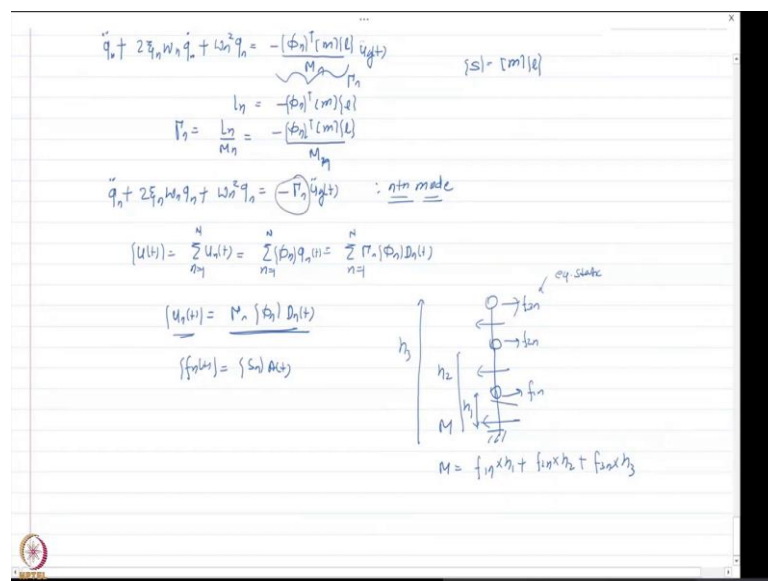 q̈ₙ + 2ξₙωₙq̇ₙ + ωₙ²qₙ = -{φₙ}ᵀ[m]{l} / Mₙ üg(t)
Γₙ
{S} = [m]{l}
Lₙ = -{φₙ}ᵀ[m]{l}
Γₙ = Lₙ / Mₙ = -{φₙ}ᵀ[m]{l} / Mₙ
q̈ₙ + 2ξₙωₙqₙ + ωₙ²qₙ = -Γₙ üg(t) : nth mode
{U(t)} = Σₙ₌₁ᴺ Uₙ(t) = Σₙ₌₁ᴺ {φₙ}qₙ(t) = Σₙ₌₁ᴺ Γₙ{φₙ}Dₙ(t)
{uₙ(t)} = Γₙ{φₙ}Dₙ(t)
{fₙ(t)} = {Sₙ}A(t)
eq. static
f₃ₙ
h₃
f₂ₙ
h₂
f₁ₙ
h₁
M
M = f₁ₙ×h₁ + f₂ₙ×h₂ + f₃ₙ×h₃
NPTEL